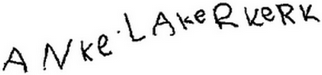 ANKe·LAKeRKeRK